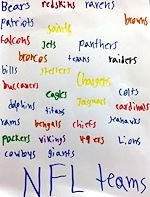 Bears redskins ravens
patriots saints browns
falcons jets panthers
broncos texans raiders
bills steelers Chargers
buccaneers eagles colts
dolphins titans Jaguars cardinals
rams bengals chiefs Seahawks
packers vikings 49ers Lions
cowboys giants
NFL teams